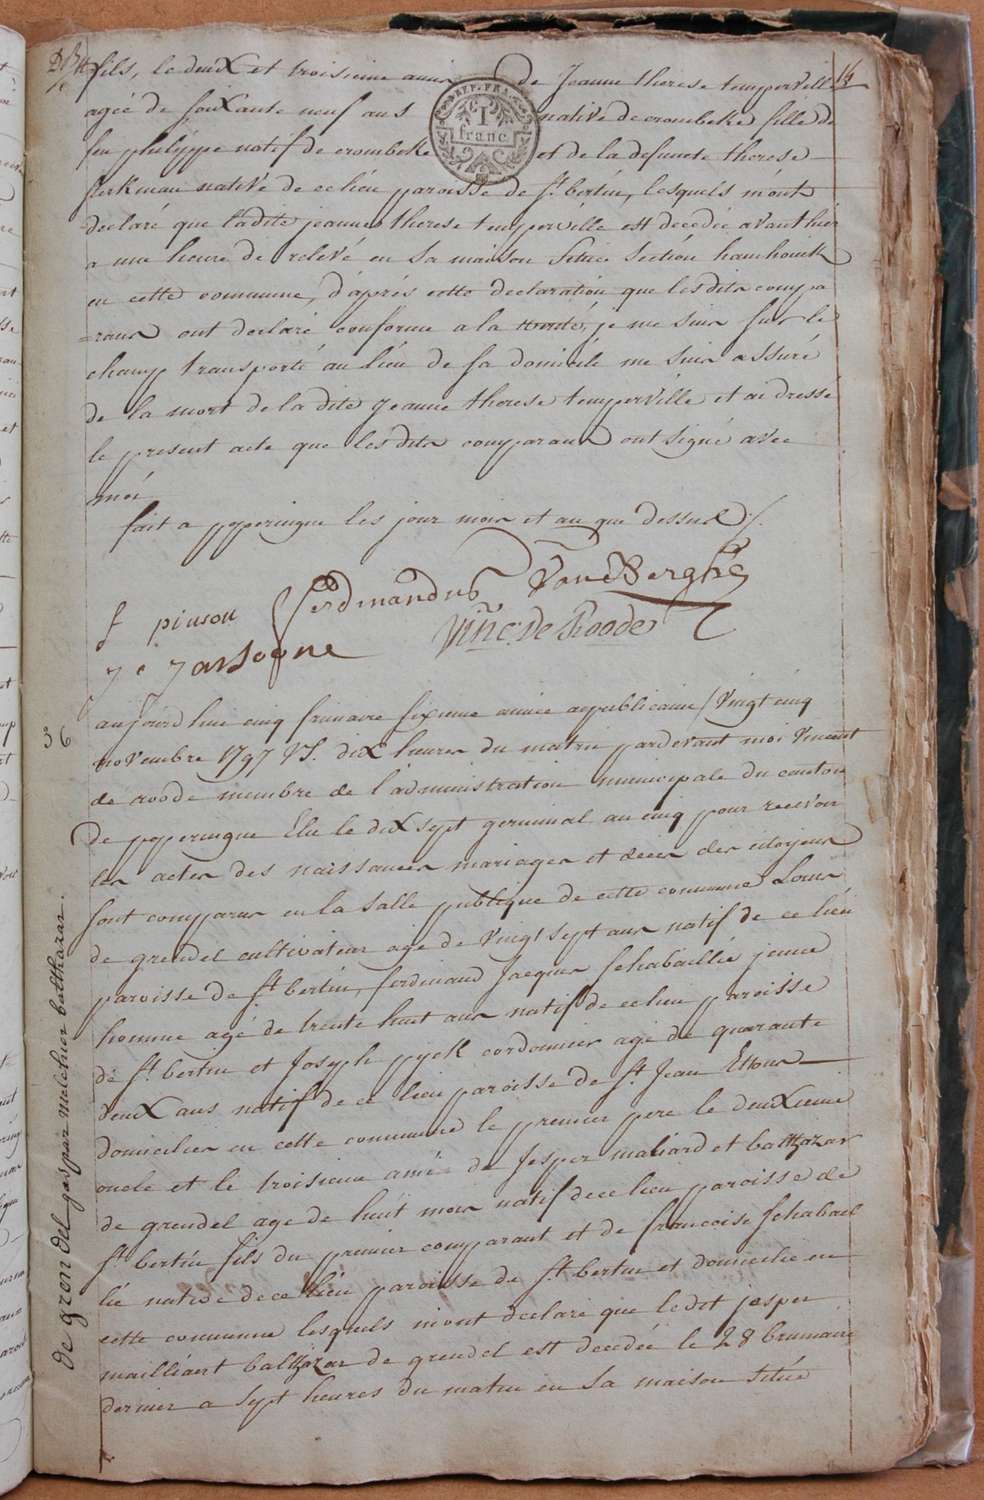 fils, le deux et troisieme amis de Jeanne therese temperville
14
agée de soixante neuf ans native de crombeke fille de
REP. FRA.
1
franc
feu philippe natif de crombeke et de la defuncte therese
ferkman native de ce lieu paroisse de st bertin, lesquels m'ont
declaré que ladite jeanne therese temperville est decedée avanthier
a une heure de relevé en sa maison située section hamhouck
en cette commune, d'après cette declaration que lesdits compa
=rans ont declaré conforme a la verité, je me suis sur le
champ transporté au lieu de sa domicile me suis assuré
de la mort de la dite jeanne therese temperville et ai dressé
le present acte que lesdits comparans ont signé avec
moi
fait a poperingue les jour mois et an que dessus ./.
f pinson ferdinandus Vanden Berghe
Vinc. De Roode
36
aujourd'hui cinq frimaire sixieme année republicaine / vingt cinq
novembre 1797 V.S. dix heures du matin pardevant moi Vincent
de roode membre de l'administration municipale du canton
de poperingue Elu le dix sept germinal an cinq pour recevoir
les actes des naissances mariages et deces des citoyens
sont comparus en la salle publique de cette commune Louis
de grendel cultivateur agé de vingt sept ans natif de ce lieu
paroisse de st bertin, ferdinand Jacques schabaillie jeune
homme agé de trente huit ans natif de ce lieu paroisse
de st bertin et Joseph pyck cordonnier agé de quarante
deux ans natif de ce lieu paroisse de st Jean Etous
domiciliés en cette commune le premier pere le deuxieme
oncle et le troisieme amé de Jesper maliard et balthazar
de grendel agé de huit mois natif de ce lieu paroisse de
st bertin fils du premier comparant et de francoise schabael
lié native de ce lieu paroisse de st bertin et domicilié en
cette commune lesquels m'ont declaré que ledit jesper
mailliaert balthazar de grendel est decedée le 28 brumaire
dernier a sept heures du matin en sa maison située
de grendel gaspar melchior balthazar.